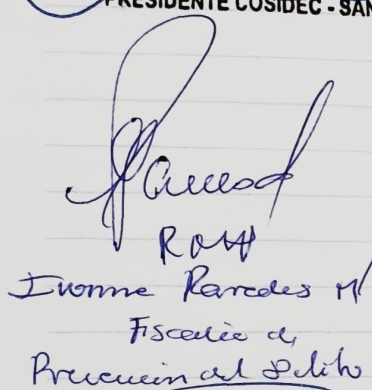 PRESIDENTE COSIDEC - SAN
Ivonne Paredes M
Fiscalía de
Prevención del Delito